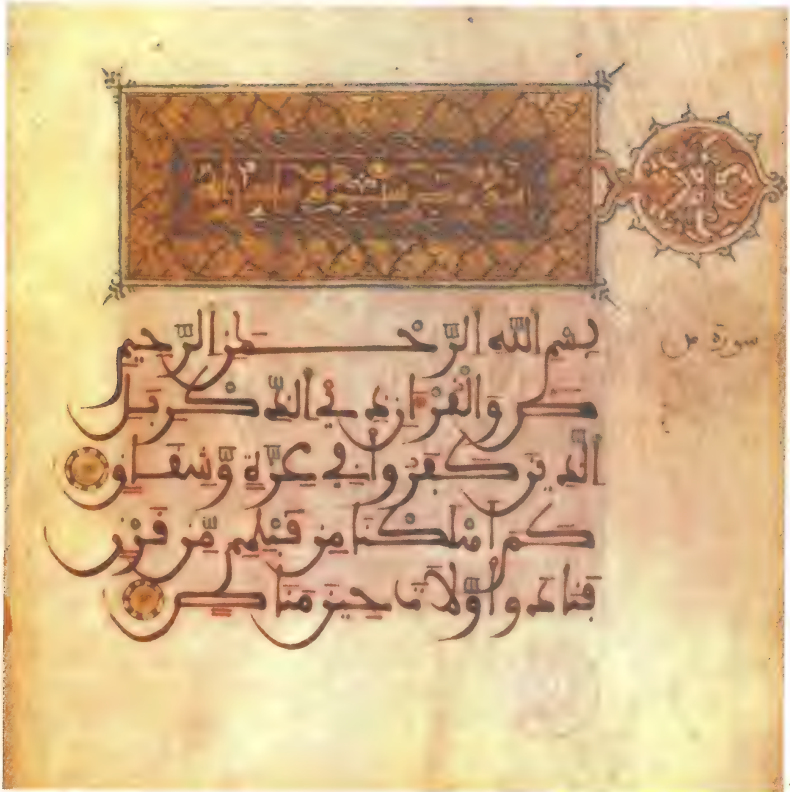 بِسْمِ اللَّهِ الرَّحْمَٰنِ الرَّحِيمِ
سورة ص
صَ وَالْقُرْءَانِ ذِي الذِّكْرِ بَلِ
الَّذِينَ كَفَرُوا فِي عِزَّةٍ وَّشِقَاقٍ
كَمَ اَهْلَكْنَا مِن قَبْلِهِم مِّن قَرْنٍ
فَنَادَوا وَّلَاتَ حِينَ مَنَاصٍ